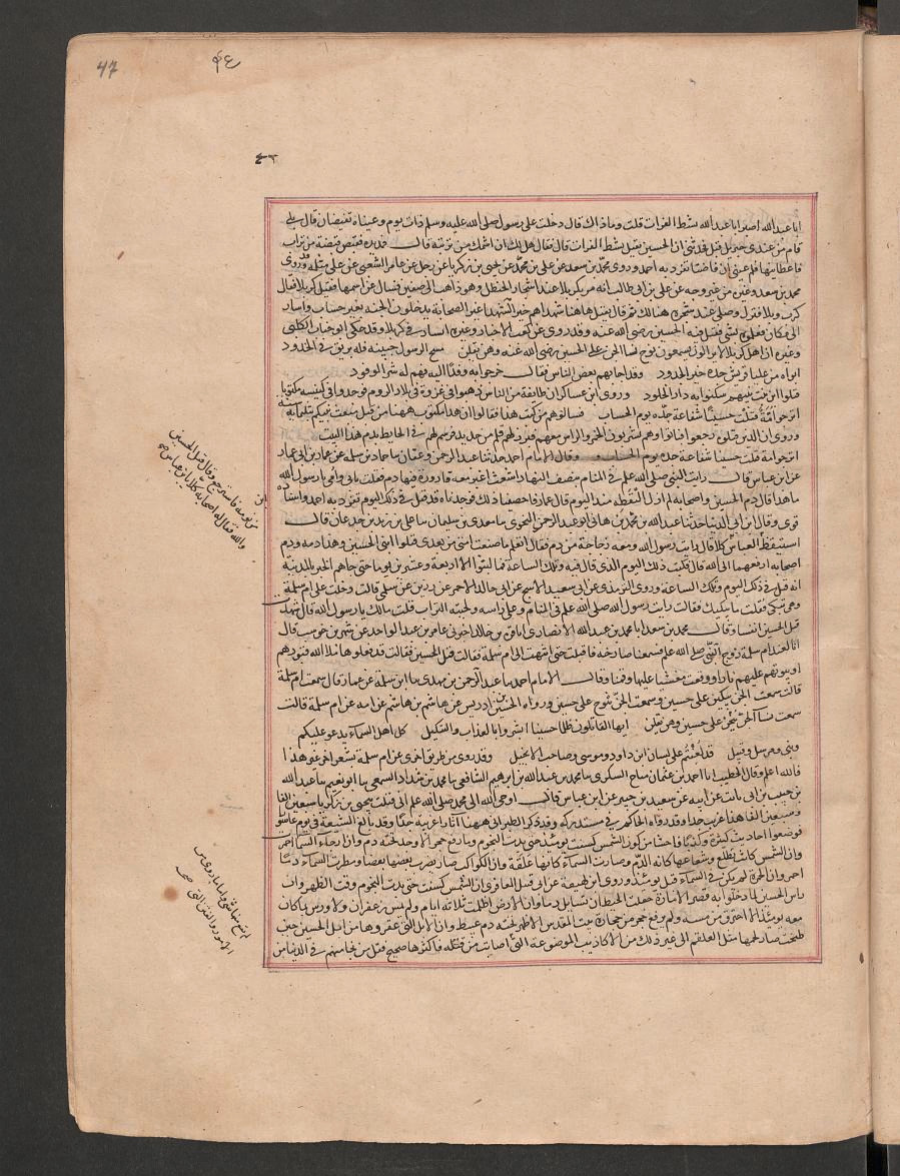 47
ابا عبد الله اصبر ابا عبد الله بشط الفرات قلت وماذا اك قال دخلت على رسول الله صلى الله عليه وسلم ذات يوم وعيناه تفيضان قال بلى
قام من عندي جبريل قبل فحدثني ان الحسين يقتل بشط الفرات قال فقال هل لك ان اشمك من تربته قال فمد يده فقبض قبضة من تراب
فاعطانيها فلم عيني ان فاضتا تفرد به احمد وروى محمد بن سعد عن علي بن محمد عن يحيى بن زكريا عن رجل عن عامر الشعبي عن علي مثله وقد روى
محمد بن سعد وغيره من غير وجه عن علي بن ابي طالب انه مر بكربلا عند اشجار الحنظل وهو ذاهب الى صفين فسال عن اسمها فقيل كربلا فقال
كرب وبلا فنزل وصلى عند شجرة هنالك ثم قال يقتل هاهنا شهدا هم خير الشهدا غير الصحابة يدخلون الجنة بغير حساب واشار
الى مكان فعلموه بشي فقتل فيه الحسين رضي الله عنه وقد روى عن كعب الاحبار وغيره اثار في كربلا وقد حكى ابو جناب الكلبي
وغيره ان اهل كربلا لا يزالون يسمعون نوح نسا الجن على الحسين رضي الله عنه وهن يقلن مسح الرسول جبينه فله بريق في الخدود
ابواه من عليا قريش جده خير الجدود وقد اجابهم بعض الناس فقال خرجوا به وفدا اليه فهم له شر الوفود
قتلوا ابن بنت نبيهم سكنوا به دار الخلود وروى ابن عساكر ان طائفة من الناس ذهبوا في غزوة في بلاد الروم فوجدوا في كنيسة مكتوبا
اترجو امة قتلت حسينا شفاعة جده يوم الحساب فسالوهم من كتب هذا فقالوا ان هذا مكتوب ههنا من قبل مبعث نبيكم بثلثماية سنة
وروى ان الذين قتلوه رجعوا فباتوا وهم يشربون الخمر والراس معهم فبرز لهم قلم من حديد فرسم لهم في الحايط بدم هذا البيت
اترجو امة قتلت حسينا شفاعة جده يوم الحساب وقال الامام احمد حدثنا عبد الرحمن وعفان ثنا حماد بن سلمة عن عمار بن ابي عمار
عن ابن عباس قال رايت النبي صلى الله عليه وسلم في المنام بنصف النهار اشعث اغبر معه قارورة فيها دم فقلت بابي وامي يا رسول الله
ما هذا قال دم الحسين واصحابه لم ازل التقطه منذ اليوم قال عمار فاحصينا ذلك فوجدناه قد قتل في ذلك اليوم تفرد به احمد واسناده
قوي وقال ابن ابي الدنيا حدثنا عبد الله بن محمد بن هاني ابو عبد الرحمن النحوي ثنا معدي بن سليمان ثنا علي بن زيد بن جدعان قال
استيقظ العباس كلا قال رايت رسول الله ومعه زجاجة من دم فقال اتعلم ما صنعت امتي من بعدي قتلوا ابني الحسين وهذا دمه ودم
اصحابه ارفعهما الى الله قال فكتب ذلك اليوم الذي قال فيه وتلك الساعة فما لبثوا الا اربعة وعشرين يوما حتى جاهم الخبر بالمدينة
انه قتل في ذلك اليوم وتلك الساعة وروى الترمذي عن ابي سعيد الاشج عن ابي خالد الاحمر عن رزين عن سلمى قالت دخلت على ام سلمة
وهي تبكي فقلت ما يبكيك فقالت رايت رسول الله صلى الله عليه في المنام وعلى راسه ولحيته التراب فقلت مالك يا رسول الله قال شهدت
قتل الحسين انفا وقال محمد بن سعد انا محمد بن عبد الله الانصاري انا قرة بن خالد اخبرني عامر بن عبد الواحد عن شهر بن حوشب قال
انا لعند ام سلمة زوج النبي صلى الله عليه وسلم فسمعنا صارخة فاقبلت حتى انتهت الى ام سلمة فقالت قتل الحسين فقالت قد فعلوها ملا الله قبورهم
او بيوتهم عليهم نارا ووقعت مغشيا عليها وقمنا وقال الامام احمد ثنا عبد الرحمن بن مهدي ثنا ابن سلمة عن عمار قال سمعت ام سلمة
قالت سمعت الجن يبكين على حسين وسمعت الجن تنوح على حسين ورواه الحسين بن ادريس عن هاشم بن هاشم عن امه عن ام سلمة قالت
سمعت نسا الجن ينحن على حسين وهن يقلن ايها القاتلون ظلما حسينا ابشروا بالعذاب والتنكيل كل اهل السماء يدعو عليكم
ونبي ومرسل وقبيل قد لعنتم على لسان ابن داود وموسى وصاحب الانجيل وقد روى من طريق اخرى عن ام سلمة بشعر اخر غير هذا
فالله اعلم وقال الخطيب انا احمد بن عثمان بن مياح السكري ثنا محمد بن عبد الله بن ابراهيم الشافعي ثنا محمد بن شداد المسمعي ثنا ابو نعيم ثنا عبد الله
بن حبيب بن ابي ثابت عن ابيه عن سعيد بن جبير عن ابن عباس قال اوحى الله الى محمد صلى الله عليه اني قتلت بيحيى بن زكريا سبعين الفا
وسبعين الفا هذا غريب جدا وقد رواه الحاكم في مستدركه وقد ذكر الطبراني ههنا آثارا غريبة جدا وقد بالغ الشيعة في يوم عاشورا
فوضعوا احاديث كثيرة وكذبا فاحشا من كون الشمس كسفت يومئذ حتى بدت النجوم وما رفع حجر الا وجد تحته دم وان ارجاء السما احمرت
وان الشمس كانت تطلع وشعاعها كانه الدم وصارت السماء كانها علقة وان الكواكب صار يضرب بعضها بعضا ومطرت السماء دما
احمر وان الحمرة لم يكن في السماء قبل يومئذ وروى ابن لهيعة عن ابي قبيل المعافري ان الشمس كسفت حتى بدت النجوم وقت الظهر وان
راس الحسين لما دخلوا به قصر الامارة جعلت الحيطان تسايل دما وان الارض اظلمت ثلاثة ايام ولم يمس زعفران ولا ورس مما كان
معه يومئذ الا احترق من مسه ولم يرفع حجر من حجارة بيت المقدس الا ظهر تحته دم عبيط وان الابل التي عقروها من ابل الحسين حين
طبخت صار لحمها مثل العلقم الى غير ذلك من الاكاذيب الموضوعة التي اصابت من قتله فاكثرها صحيح فقل من نجا منهم في الدنيا من
من نومه فاسترجع وقال قتل الحسين
والله فقال له اصحابه كلا يا ابن عباس